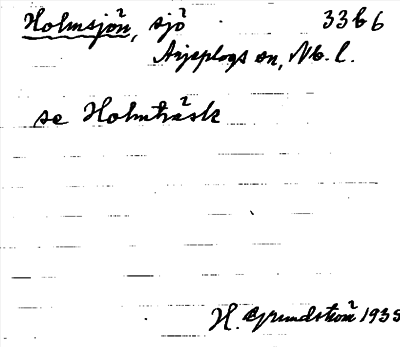 Holmsjön, sjö 33b6
Arjeplogs sn, Nb. l.
se Holmträsk
H. Grundström 1935